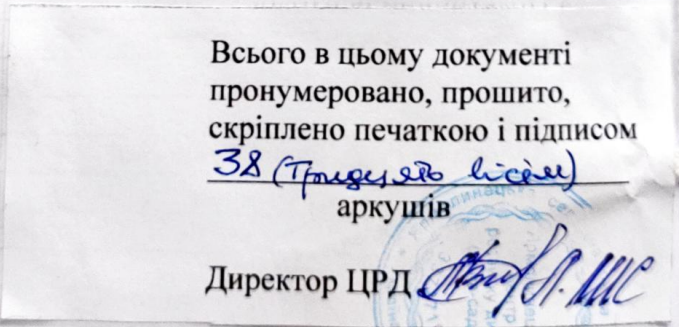 Всього в цьому документі
пронумеровано, прошито,
скріплено печаткою і підписом
38 (Тридцять вісім)
аркушів
Директор ЦРД